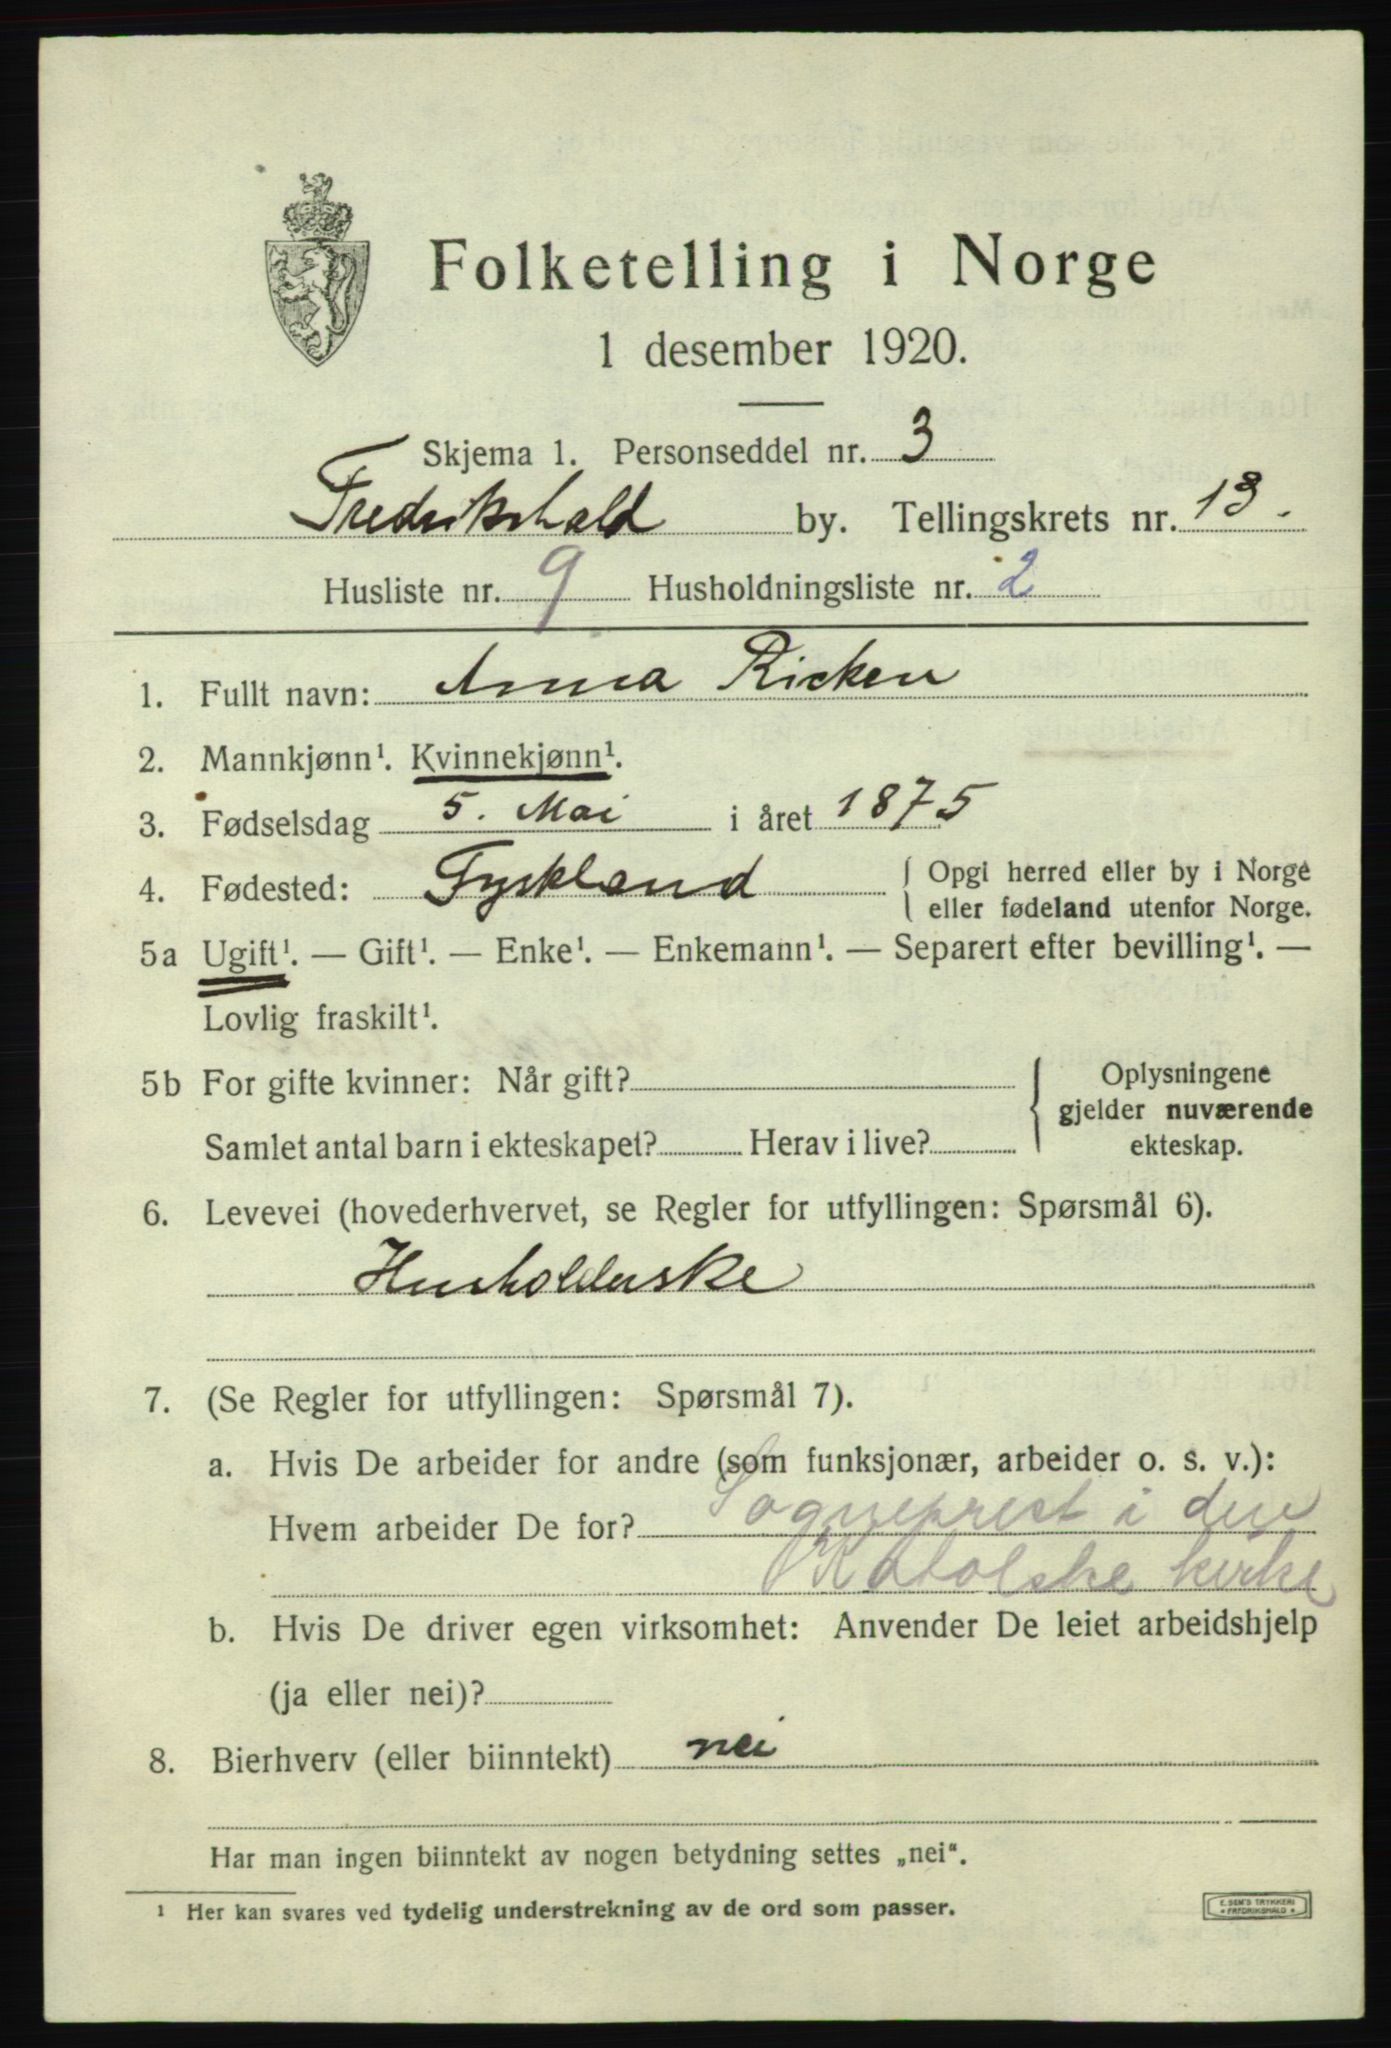 Folketelling i Norge
1 desember 1920.
Skjema 1. Personseddel nr. 3
Fredrikshald by. Tellingskrets nr. 13.
Husliste nr. 9 Husholdningsliste nr. 2
1. Fullt navn: Anna Ricken
2. Mannkjønn¹. Kvinnekjønn¹.
3. Fødselsdag 5. Mai i året 1875
4. Fødested: Tyskland { Opgi herred eller by i Norge
eller fødeland utenfor Norge.
5a Ugift¹. — Gift¹. — Enke¹. — Enkemann¹. — Separert efter bevilling¹. —
Lovlig fraskilt¹.
5b For gifte kvinner: Når gift? { Oplysningene
gjelder nuværende
Samlet antal barn i ekteskapet? Herav i live? ekteskap.
6. Levevei (hovederhvervet, se Regler for utfyllingen: Spørsmål 6).
Husholderske
7. (Se Regler for utfyllingen: Spørsmål 7).
a. Hvis De arbeider for andre (som funksjonær, arbeider o. s. v.):
Hvem arbeider De for? Sogneprest i den
Katolske kirke
b. Hvis De driver egen virksomhet: Anvender De leiet arbeidshjelp
(ja eller nei)?
8. Bierhverv (eller biinntekt) nei
Har man ingen biinntekt av nogen betydning settes „nei“.
¹ Her kan svares ved tydelig understrekning av de ord som passer.
E. SEM'S TRYKKERI
FREDRIKSHALD